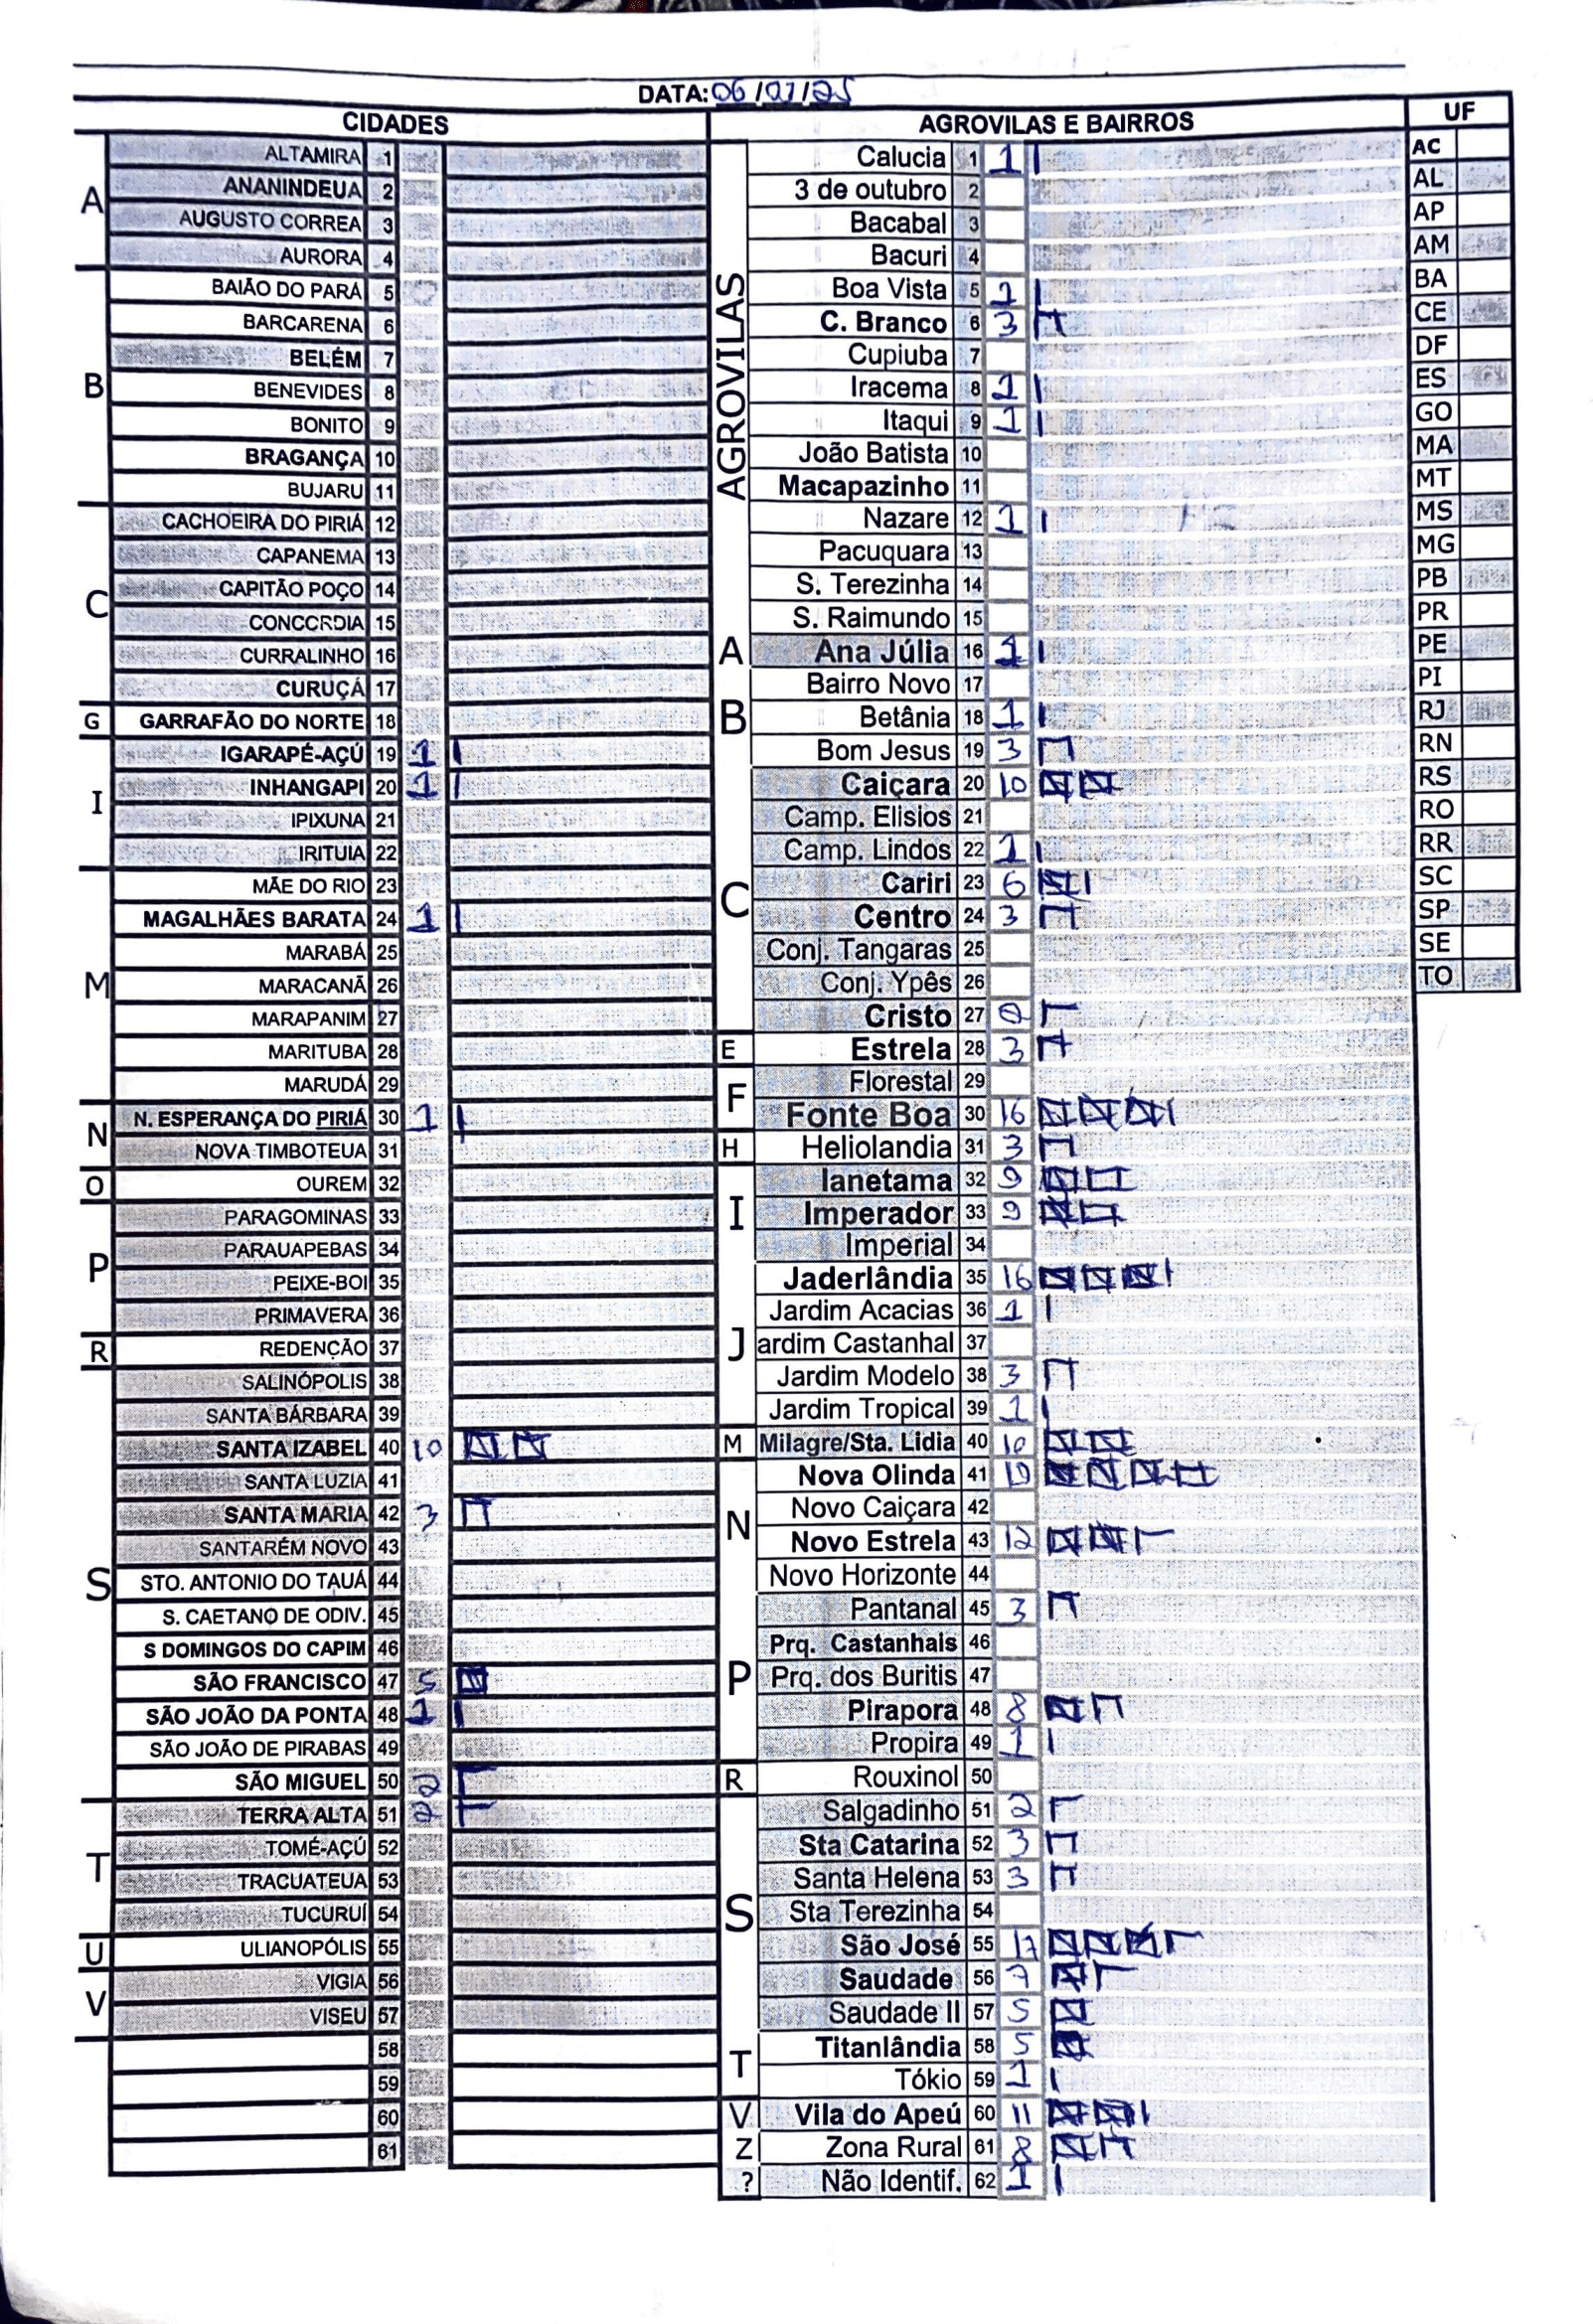 DATA: 06/01/25
CIDADES
A
ALTAMIRA 1
ANANINDEUA 2
AUGUSTO CORREA 3
AURORA 4
B
BAIÃO DO PARÁ 5
BARCARENA 6
BELÉM 7
BENEVIDES 8
BONITO 9
BRAGANÇA 10
BUJARU 11
C
CACHOEIRA DO PIRIÁ 12
CAPANEMA 13
CAPITÃO POÇO 14
CONCORDIA 15
CURRALINHO 16
CURUÇÁ 17
G
GARRAFÃO DO NORTE 18
I
IGARAPÉ-AÇÚ 19 1
INHANGAPI 20 1
IPIXUNA 21
IRITUIA 22
M
MÃE DO RIO 23
MAGALHÃES BARATA 24 1
MARABÁ 25
MARACANÃ 26
MARAPANIM 27
MARITUBA 28
MARUDÁ 29
N
N. ESPERANÇA DO PIRIÁ 30 1
NOVA TIMBOTEUA 31
O
OUREM 32
P
PARAGOMINAS 33
PARAUAPEBAS 34
PEIXE-BOI 35
PRIMAVERA 36
R
REDENÇÃO 37
S
SALINÓPOLIS 38
SANTA BÁRBARA 39
SANTA IZABEL 40 10
SANTA LUZIA 41
SANTA MARIA 42 3
SANTARÉM NOVO 43
STO. ANTONIO DO TAUÁ 44
S. CAETANO DE ODIV. 45
S DOMINGOS DO CAPIM 46
SÃO FRANCISCO 47 5
SÃO JOÃO DA PONTA 48 1
SÃO JOÃO DE PIRABAS 49
SÃO MIGUEL 50 2
T
TERRA ALTA 51 2
TOMÉ-AÇÚ 52
TRACUATEUA 53
TUCURUÍ 54
U
ULIANOPÓLIS 55
V
VIGIA 56
VISEU 57
58
59
60
61
AGROVILAS E BAIRROS
AGROVILAS
Calucia 1 1
3 de outubro 2
Bacabal 3
Bacuri 4
Boa Vista 5 1
C. Branco 6 3
Cupiuba 7
Iracema 8 1
Itaqui 9 1
João Batista 10
Macapazinho 11
Nazare 12 1
Pacuquara 13
S. Terezinha 14
S. Raimundo 15
A
Ana Júlia 16 1
B
Bairro Novo 17
Betânia 18 1
Bom Jesus 19 3
C
Caiçara 20 10
Camp. Elisios 21
Camp. Lindos 22 1
Cariri 23 6
Centro 24 3
Conj. Tangaras 25
Conj. Ypês 26
Cristo 27 2
E
Estrela 28 3
F
Florestal 29
Fonte Boa 30 16
H
Heliolandia 31 3
I
Ianetama 32 9
Imperador 33 9
Imperial 34
J
Jaderlândia 35 16
Jardim Acacias 36 1
ardim Castanhal 37
Jardim Modelo 38 3
Jardim Tropical 39 1
M
Milagre/Sta. Lidia 40 10
N
Nova Olinda 41 19
Novo Caiçara 42
Novo Estrela 43 12
Novo Horizonte 44
P
Pantanal 45 3
Prq. Castanhais 46
Prq. dos Buritis 47
Pirapora 48 8
Propira 49 1
R
Rouxinol 50
S
Salgadinho 51 2
Sta Catarina 52 3
Santa Helena 53 3
Sta Terezinha 54
São José 55 17
Saudade 56 7
Saudade II 57 5
T
Titanlândia 58 5
Tókio 59 1
V
Vila do Apeú 60 11
Z
Zona Rural 61 8
?
Não Identif. 62 1
UF
AC
AL
AP
AM
BA
CE
DF
ES
GO
MA
MT
MS
MG
PB
PR
PE
PI
RJ
RN
RS
RO
RR
SC
SP
SE
TO